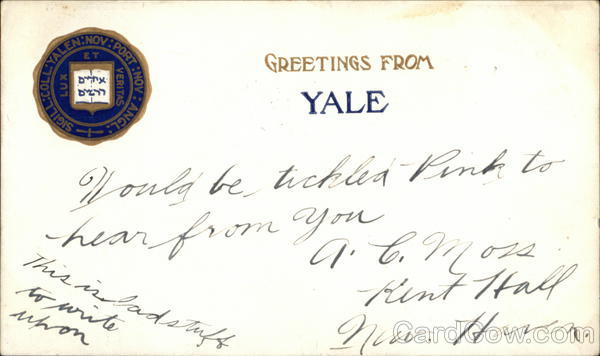 SIGILL: COLL: YALEN: NOV: PORT: NOV: ANGL:
LUX ET VERITAS
אורים
ותמים
GREETINGS FROM
YALE
Would be tickled Pink to
hear from you
A. C. Moss
Kent Hall
New Haven
This is bad stuff
to write
upon
CardCow.com